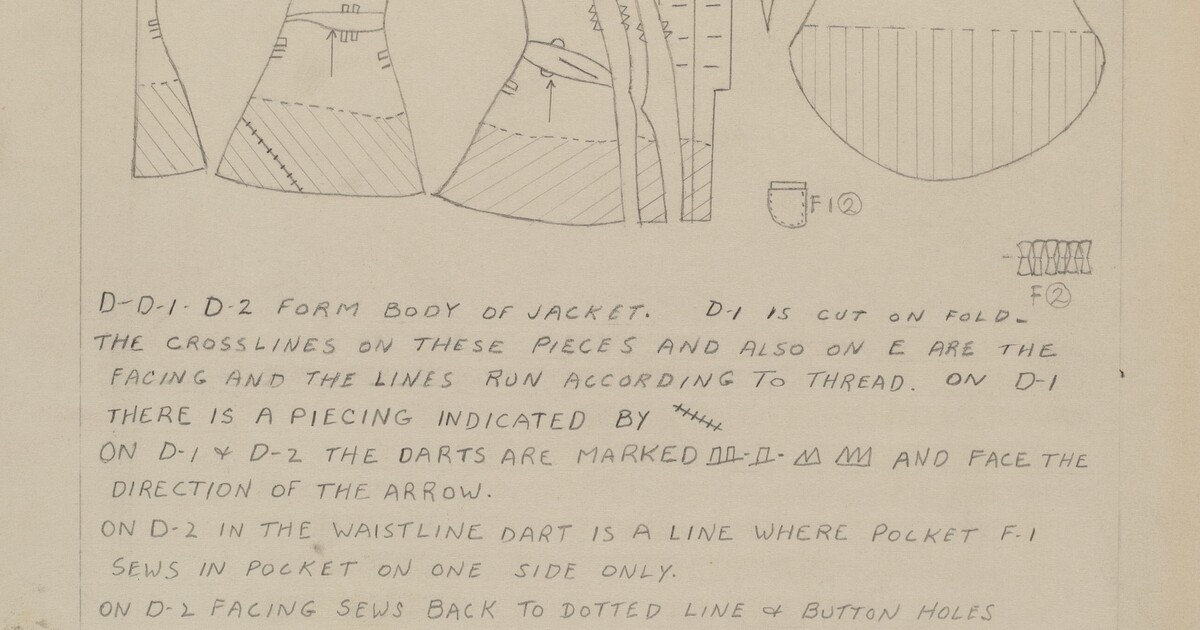 F 1 ②
F ②
D-D-1- D-2 FORM BODY OF JACKET. D-1 IS CUT ON FOLD-
THE CROSSLINES ON THESE PIECES AND ALSO ON E ARE THE
FACING AND THE LINES RUN ACCORDING TO THREAD. ON D-1
THERE IS A PIECING INDICATED BY
ON D-1 & D-2 THE DARTS ARE MARKED AND FACE THE
DIRECTION OF THE ARROW.
ON D-2 IN THE WAISTLINE DART IS A LINE WHERE POCKET F-1
SEWS IN POCKET ON ONE SIDE ONLY.
ON D-2 FACING SEWS BACK TO DOTTED LINE & BUTTON HOLES